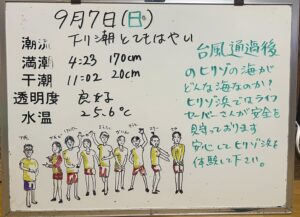 9月7日(日)
潮流 下り潮とてもはやい
満潮 4:23 170cm
干潮 11:02 20cm
透明度 良好
水温 25.6℃
台風通過後
のヒリゾの海が
どんな海なのか?
ヒリゾ浜ではライフ
セーバーさんが安全を
見守っております
安心してヒリゾ浜を
体験して下さい。